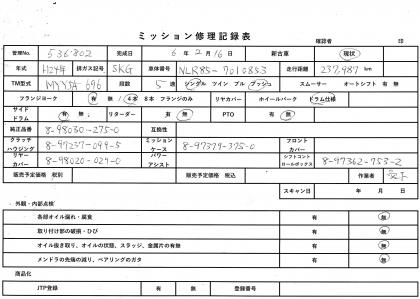 ミッション修理記録表
確認者 印
管理No. 536-802 完成日 6 年 2 月 16 日 新古車 現状
年式 H24年 排ガス記号 SKG 車体番号 NLR85-7010853 走行距離 237,987 km
TM型式 MYY5A-696 段数 5 速 シングル ツイン プル プッシュ スムーサー オートシフト 有 無
フランジヨーク 有 無 / 4本 8本 フランジのみ リヤカバー ホイールパーク ドラム仕様
サイドドラム 有 無 リターダー 有 無 PTO 有 無
純正品番 8-98030-275-0 互換性
クラッチハウジング 8-97237-099-5 ミッションケース 8-97379-375-0 フロントカバー
リヤーカバー 8-98020-024-0 パワーアシスト シフトコントロールボックス 8-97362-753-2
販売予定価格 税別 販売予定価格 税込 作業者
スキャン日 年 月 日
・外観・内部点検
各部オイル漏れ・腐食 有 無
取り付け部の破損・ひび 有 無
オイル抜き取り、オイルの状態、スラッジ、金属片の有無 有 無
メンドラの先端の減り、ベアリングのガタ 有 無
商品化
JTP登録 有 無 登録番号